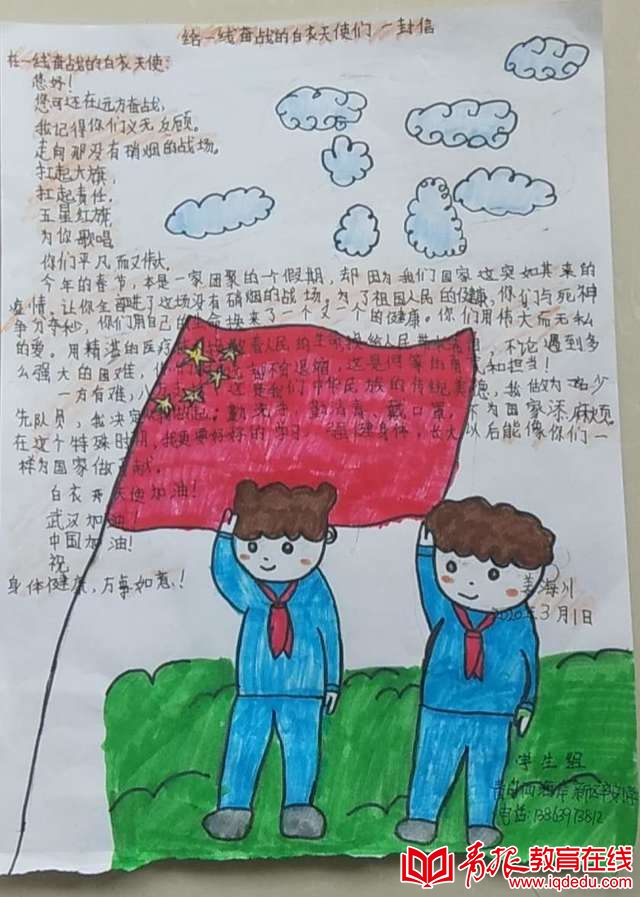 给一线奋战的白衣天使们一封信
在一线奋战的白衣天使:
您好!
您可还在远方奋战,
我记得你们义无反顾。
走向那没有硝烟的战场。
扛起大旗,
扛起责任.
五星红旗
为你歌唱
你们平凡而又伟大.
今年的春节,本是一家团聚的一个假期,却因为我们国家这突如其来的
疫情,让你全都进了这场没有硝烟的战场。为了祖国人民的健康,你们与死神
争分夺秒,你们用自己的生命换来了一个又一个的健康。你们用伟大而无私
的爱。用精湛的医疗 人民的生命 给人民 不论遇到多
么强大的困难,你们 却不退缩,这是何等的 和担当!
一方有难,八 这是我们中华民族的传统美德,我做为一名少
先队员,我决定 做起;勤洗手,勤消毒、戴口罩,不为国家添麻烦.
在这个特殊时期,我更要好好的学习,强健身体,长大以后能像你们一
样为国家做贡献。
白衣 天使加油!
武汉加油!
中国加油!
祝
身体健康,万事如意.!
姜海川
2020年3月1日
学生组
青岛西海岸新区
电话:13863973812
青报教育在线
www.iqdedu.com